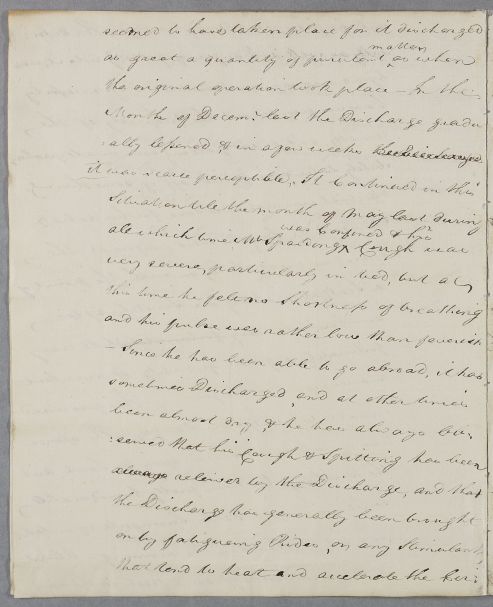 seemed to have taken place for it discharged
matter
as great a quantity of purulent ^ as when
the original operation took place – In the
Month of Decemr. last the Discharge gradu
:ally lessened & in a few weeks
it was scarce perceptible, It Continued in this
Situation till the month of May last during
was Confined & his
all which time Mr. Spalding ^ Cough was
very severe, particularly in bed, but at
this time he felt no Shortness of breathing
and his pulse was rather low than feverish
– Since he has been able to go abroad, it has
sometimes Discharged and at other times
been almost dry & he has always ob:
:served that his Cough & Spitting has been
always relieved by the Discharge, and that
the Discharge has generally been brought
on by fatigueing Rides, or any Stimulants
that tend to heat and accelerate the Cir: